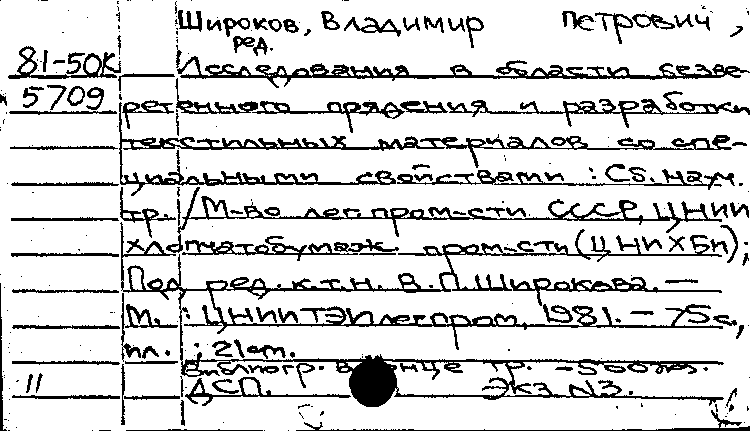 Широков, Владимир Петрович,
ред.
81-50К Исследования в области безве-
5709 ретенного прядения и разработки
текстильных материалов со спе-
циальными свойствами : Сб. науч.
тр. / М-во лег. пром-сти СССР, ЦНИИ
хлопчатобумаж. пром-сти (ЦНИХБИ);
Под ред. к.т.н. В.П. Широкова. —
М. : ЦНИИТЭИлегпром, 1981. — 75 с.,
ил. ; 21 см.
Библиогр. в конце тр. — 500 экз.
11 ДСП. Экз N3.